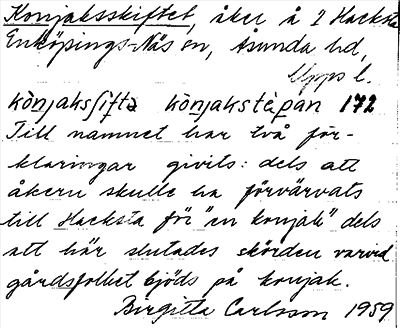 Konjaksskiftet, åker å I Hacksta
Enköpings-Näs sn, Åsunda hd,
Upps l.
kònjaksſiftə kònjakstèpan 172
Till namnet har två för-
klaringar givits: dels att
åkern skulle ha förvärvats
till Hacksta för "en konjak" dels
att här slutades skörden varvid
gårdsfolket bjöds på konjak.
Birgitta Carlsson 1959